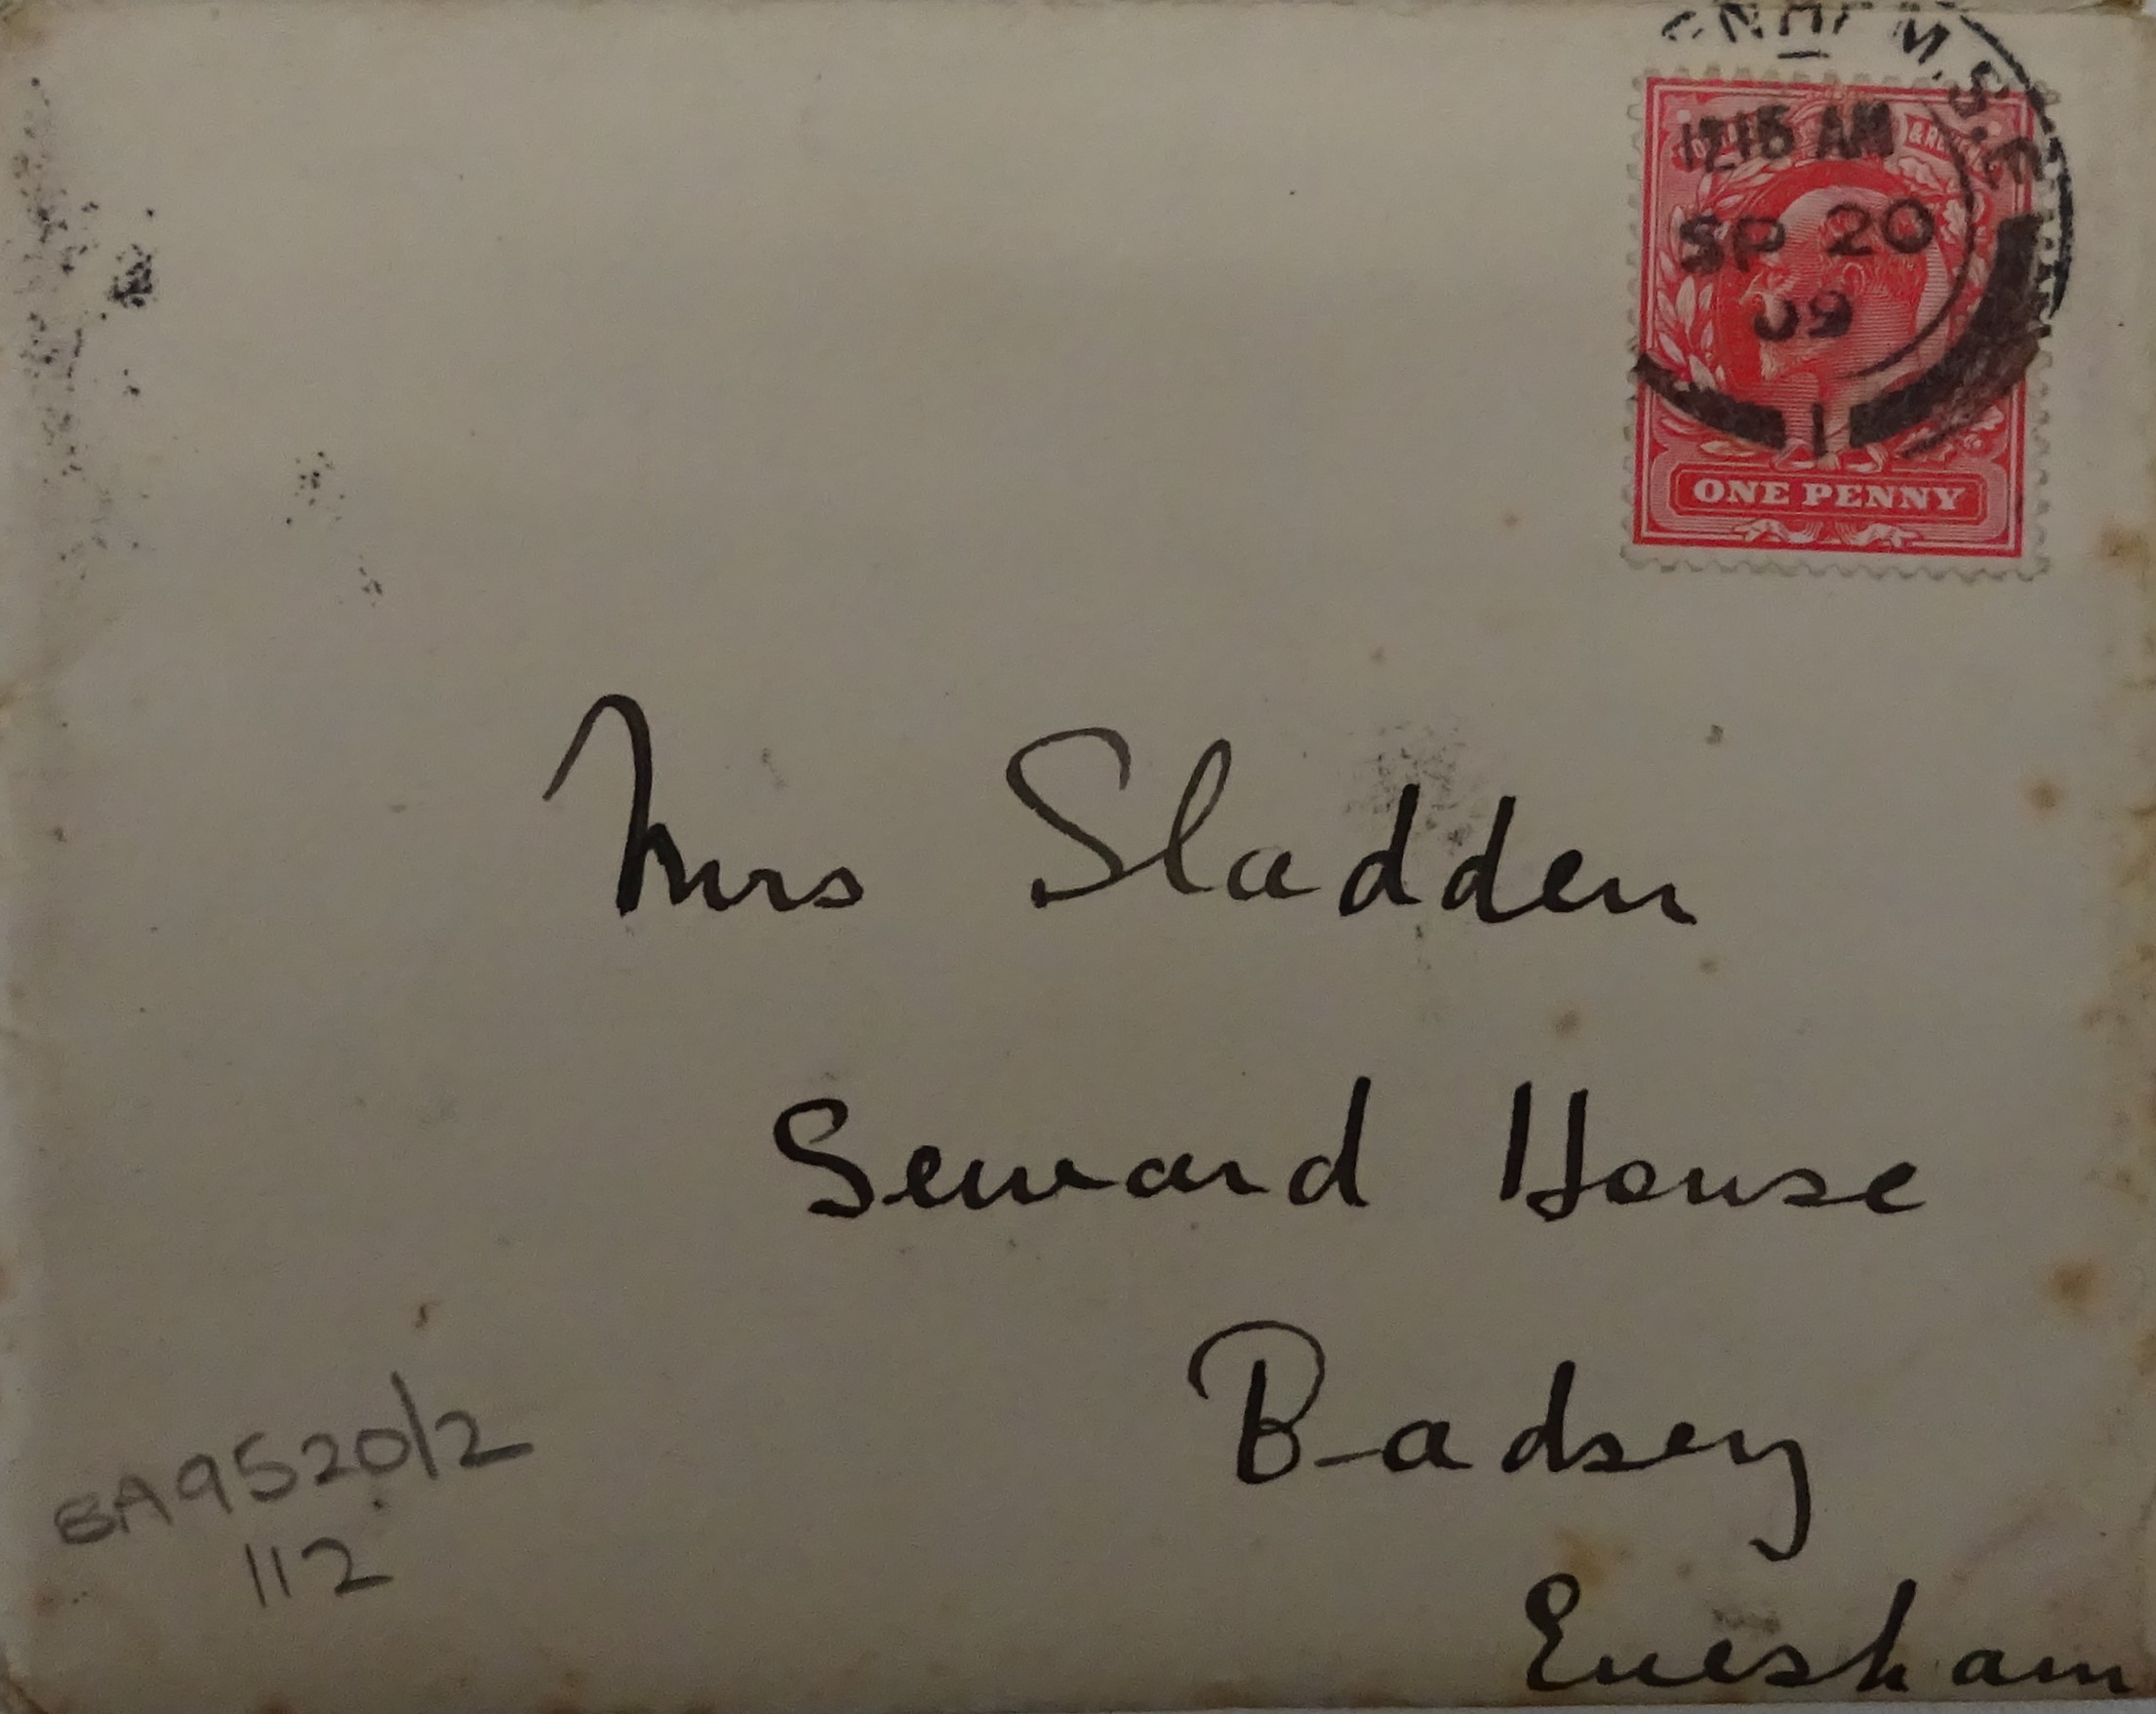 M. S.E.
12 15 AM
SP 20
09
1
ONE PENNY
Mrs Sladden
Seward House
Badsey
Evesham
EA9520/2
112